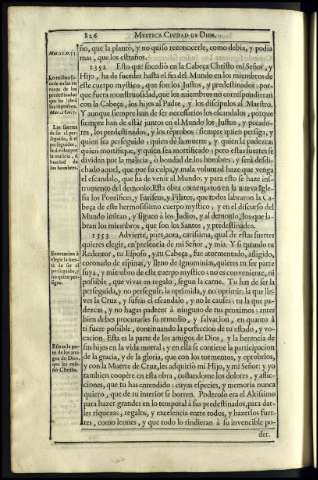 826 MYSTICA CIUDAD DE DIOS.
ño, que la plantò, y no quiso reconocerle, como debia, y podia
mas, que los estraños.
1352. Esto que sucediò en la Cabeça Christo mi Señor, y
Hijo, ha de suceder hasta el fin del Mundo en los miembros de
este cuerpo mystico, que son los Justos, y predestinados: por-
que fuera monstruosidad, que los miembros no correspondieran
con la Cabeça, los hijos al Padre, y los discipulos al Maestro.
Y aunque siempre han de ser necessarios los escandalos, porque
siempre han de estàr juntos en el Mundo los Justos, y pecado-
res, los predestinados, y los reprobos; siempre quien persiga, y
quien sea perseguido; quien dè la muerte, y quien la padezca;
quien mortifique, y quien sea mortificado; pero estas suertes se
dividen por la malicia, ò bondad de los hombres, y serà desdi-
chado aquel, que por su culpa, y mala voluntad haze que venga
el escandalo, que ha de venir al Mundo, y para esto se haze ins-
trumento del demonio. Esta obra començaron en la nueva Igle-
sia los Pontifices, y Fariseos, y Pilatos, que todos labraron la Ca-
beça de este hermosissimo cuerpo mystico, y en el discurso del
Mundo imitan, y siguen à los Judios, y al demonio, los que la-
bran los miembros, que son los Santos, y predestinados.
1353. Advierte, pues, aora, carissima, qual de estas suertes
quieres elegir, en presencia de mi Señor, y mia. Y si quando tu
Redentor, tu Esposo, y tu Cabeça, fue atormentado, afligido,
coronado de espinas, y lleno de ignominias, quieres tu ser parte
suya, y miembro de este cuerpo mystico; no es conveniente, ni
possible, que vivas en regalo, segun la carne. Tu has de ser la
perseguida, y no perseguir; la oprimida, y no oprimir; la que lle-
ves la Cruz, y sufras el escandalo, y no le causes; tu la que pa-
dezcas, y no hagas padecer à ninguno de tus proximos; antes
bien debes procurarles su remedio, y salvacion, en quanto à
ti fuere possible, continuando la perfeccion de tu estado, y vo-
cacion. Esta es la parte de los amigos de Dios, y la herencia de
sus hijos en la vida mortal, y en esta se contiene la participacion
de la gracia, y de la gloria, que con los tormentos, y oprobrios,
y con la Muerte de Cruz, les adquiriò mi Hijo, y mi Señor; y yo
tambien cooperè en esta obra, costandome los dolores, y aflic-
ciones, que tu has entendido; cuyas especies, y memoria nunca
quiero, que de tu interior se borren. Poderoso era el Altissimo
para hazer grandes en lo temporal à sus predestinados, para dar-
les riquezas, regalos, y excelencia entre todos, y hazerlos fuer-
tes, como leones, y que todo lo rindieran à su invencible po-
der.